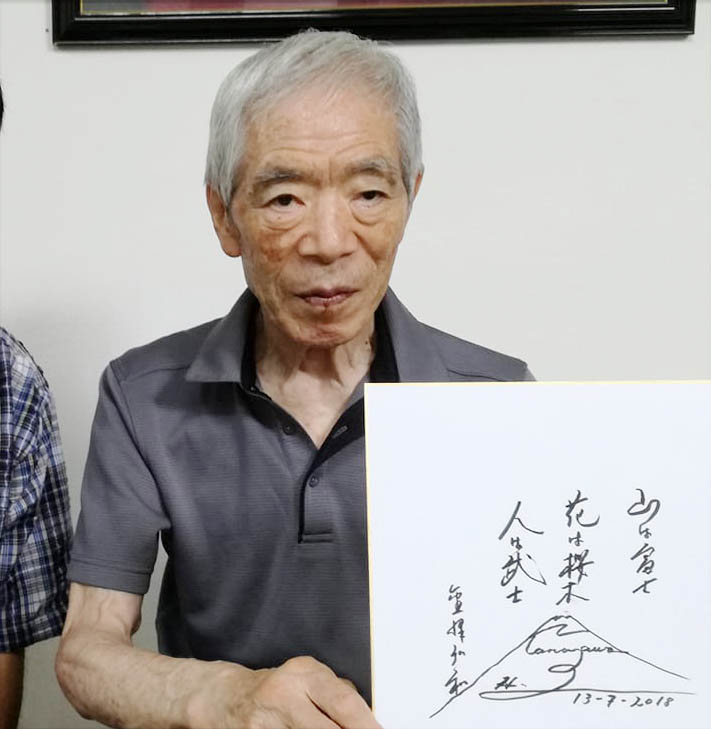 山は富士
花は櫻木
人は武士
金澤弘和
13-7-2018